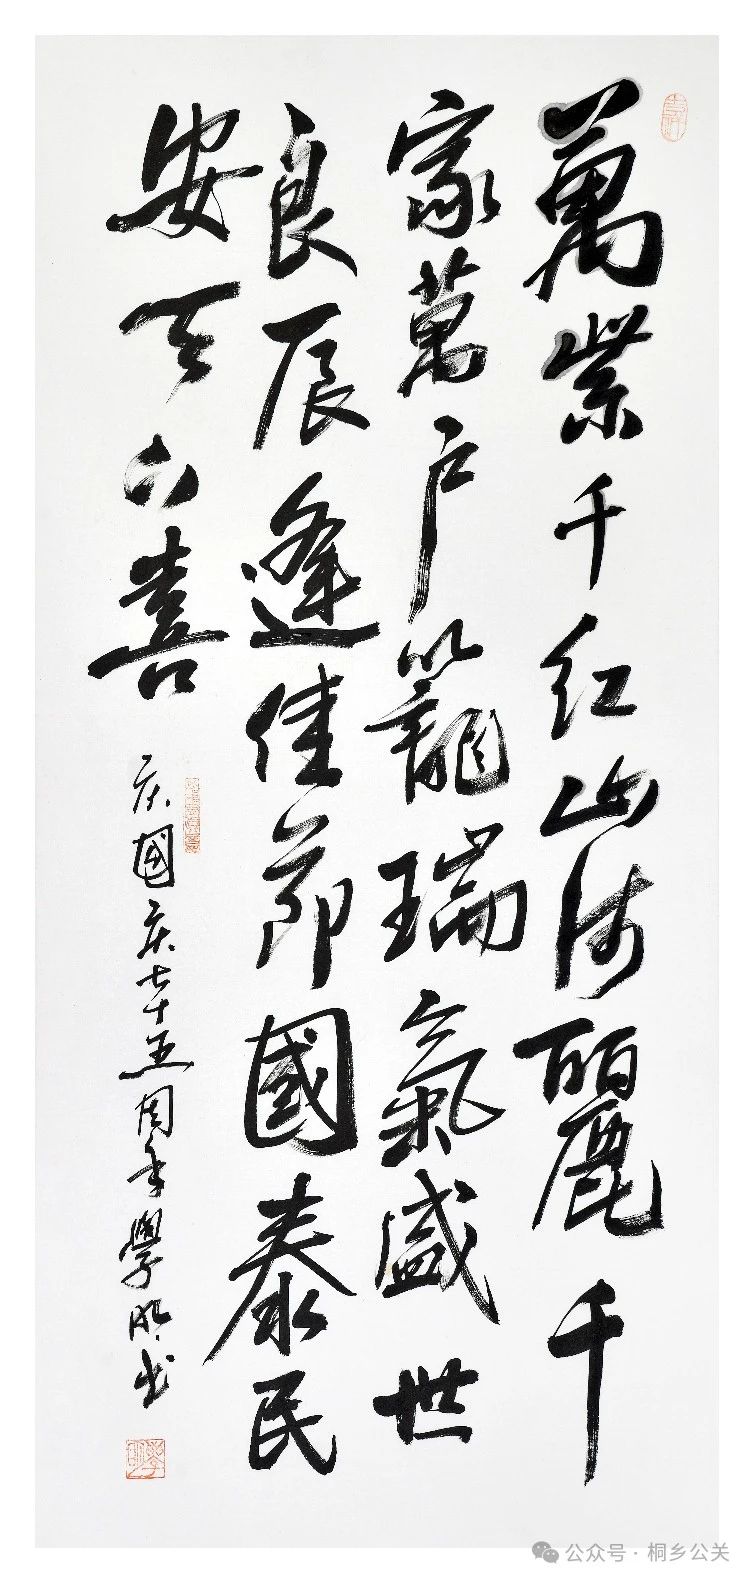 萬紫千红山河麗千
家萬户籠瑞氣盛世
良辰逢佳節國泰民
安天下喜
庆國庆七十五周年學明书
公众号·桐乡公关